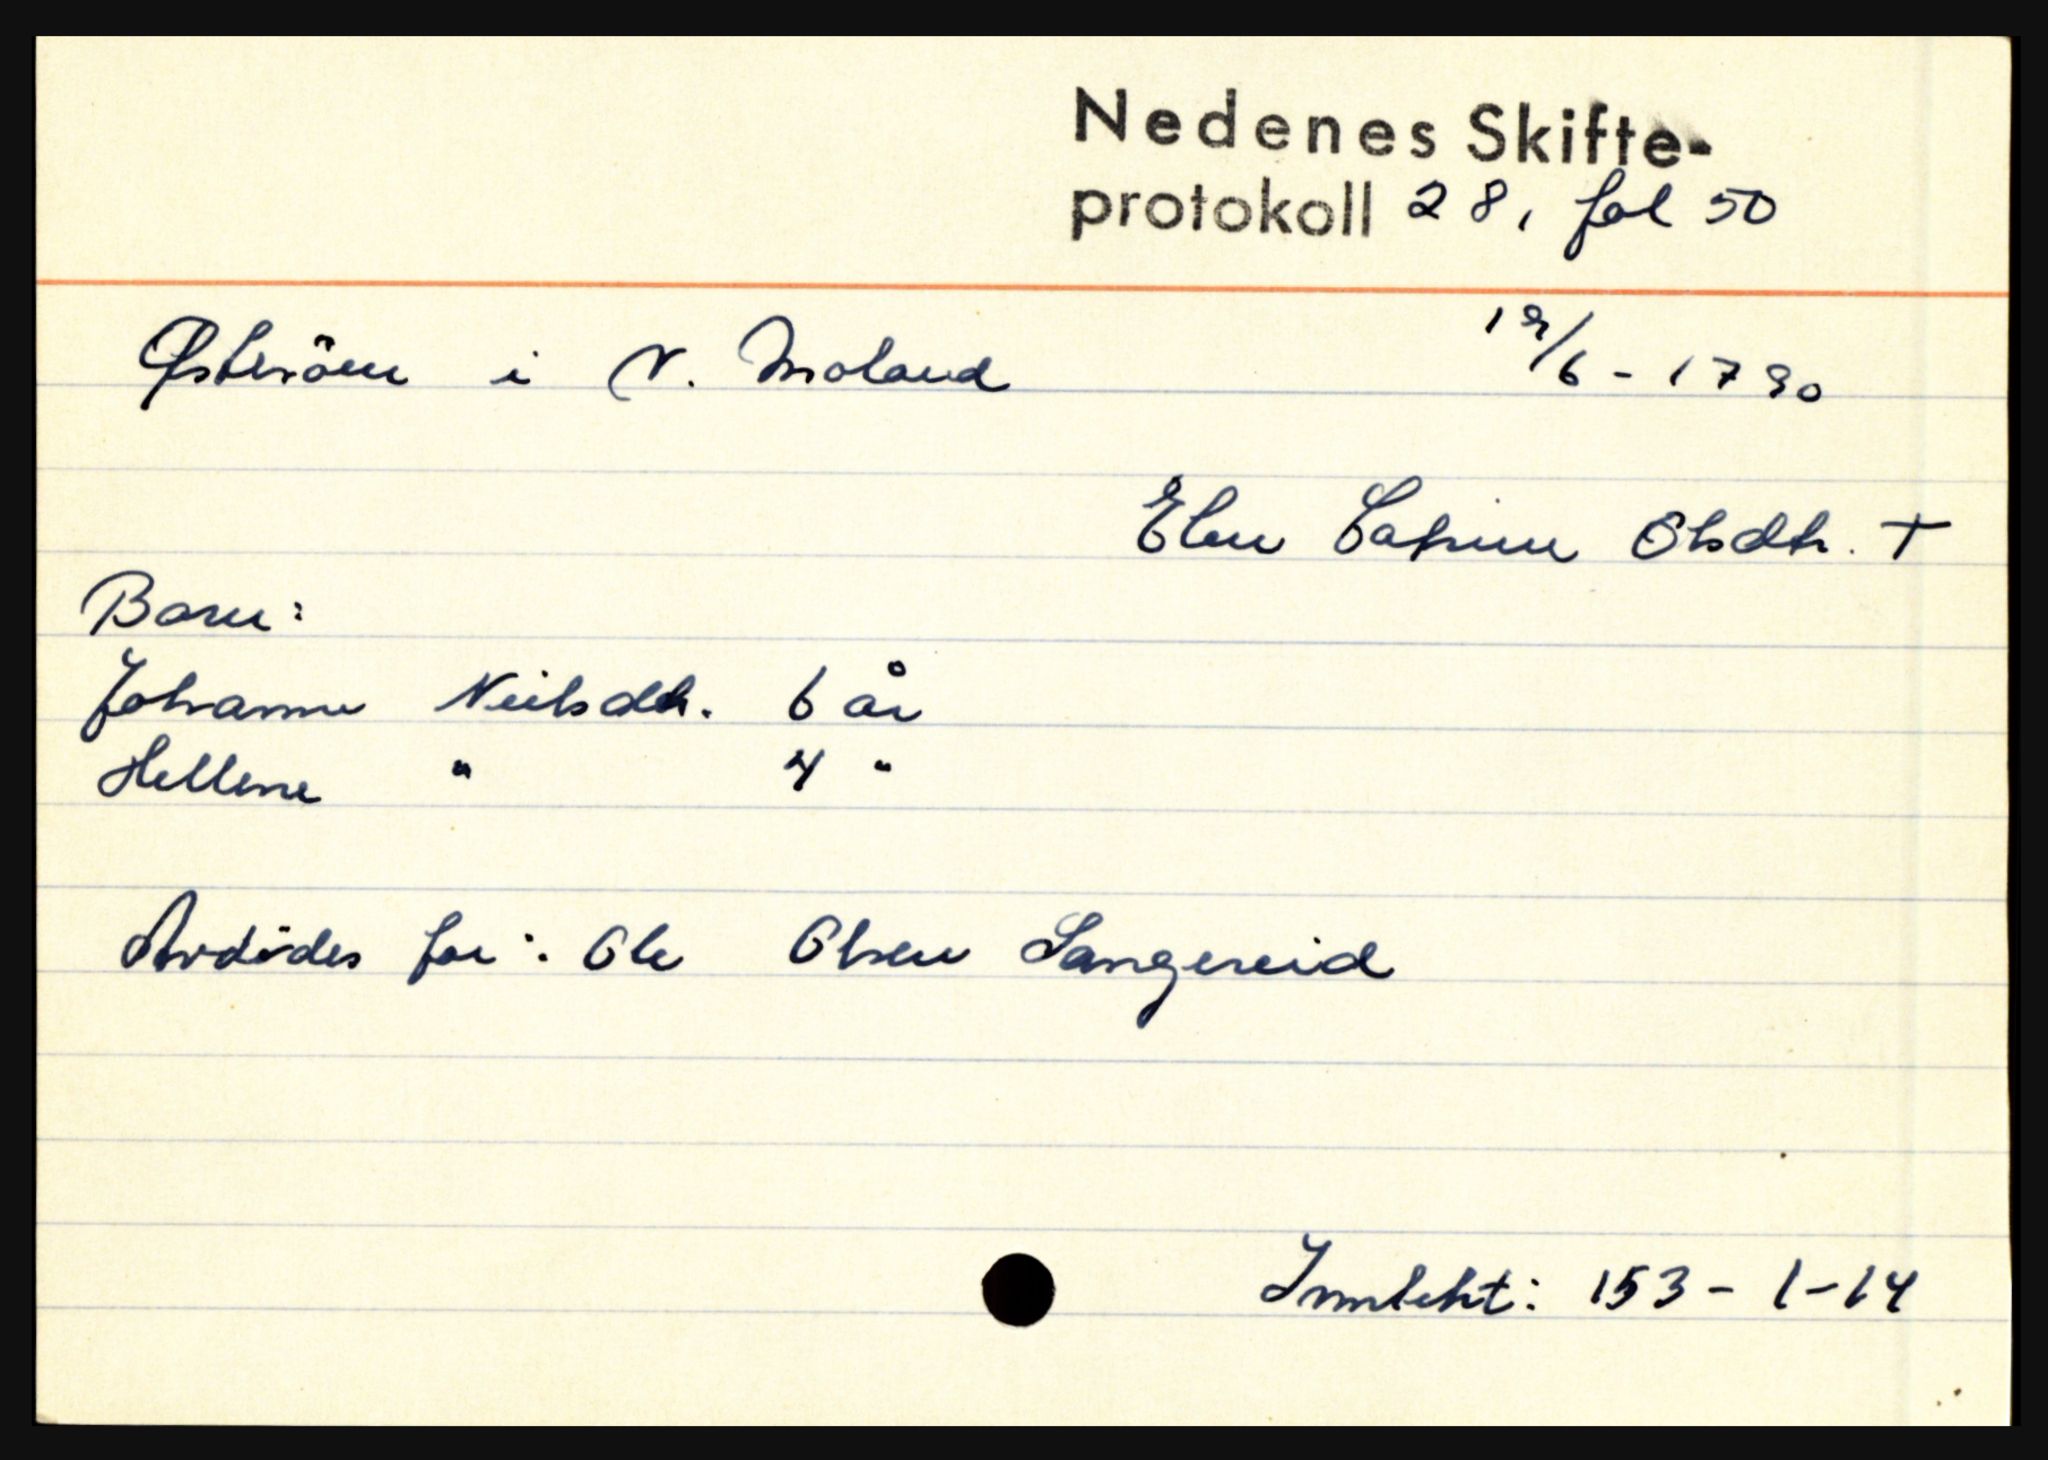 Nedenes Skifte-
protokoll 28, fol 50
Østeröen i N. Moland 19/6 - 1790
Elen Catrine Olsdtr. †
Born:
Johanne Neilsdtr. 6 år
Hellene " 4 "
Avdödes far: Ole Olsen Sangereid
Inntekt: 153 - 1 - 14